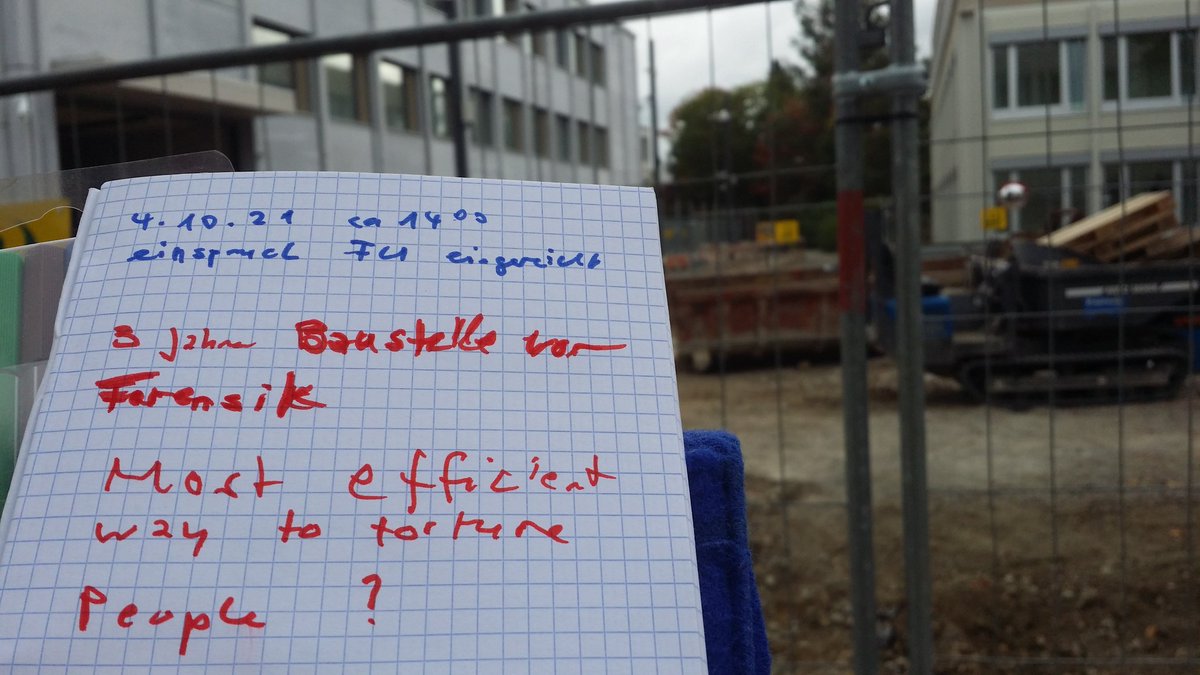 4.10.21 ca 14⁰⁰
einspruch FU eingereicht
3 Jahre Baustelle vor
Forensik
Most efficient
way to torture
People ?